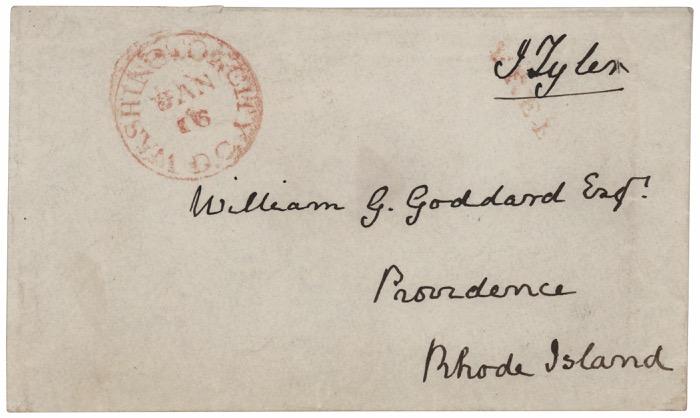 WASHINGTON CITY D.C.
JAN
16
FREE
J Tyler
William G. Goddard Esqr.
Providence
Rhode Island